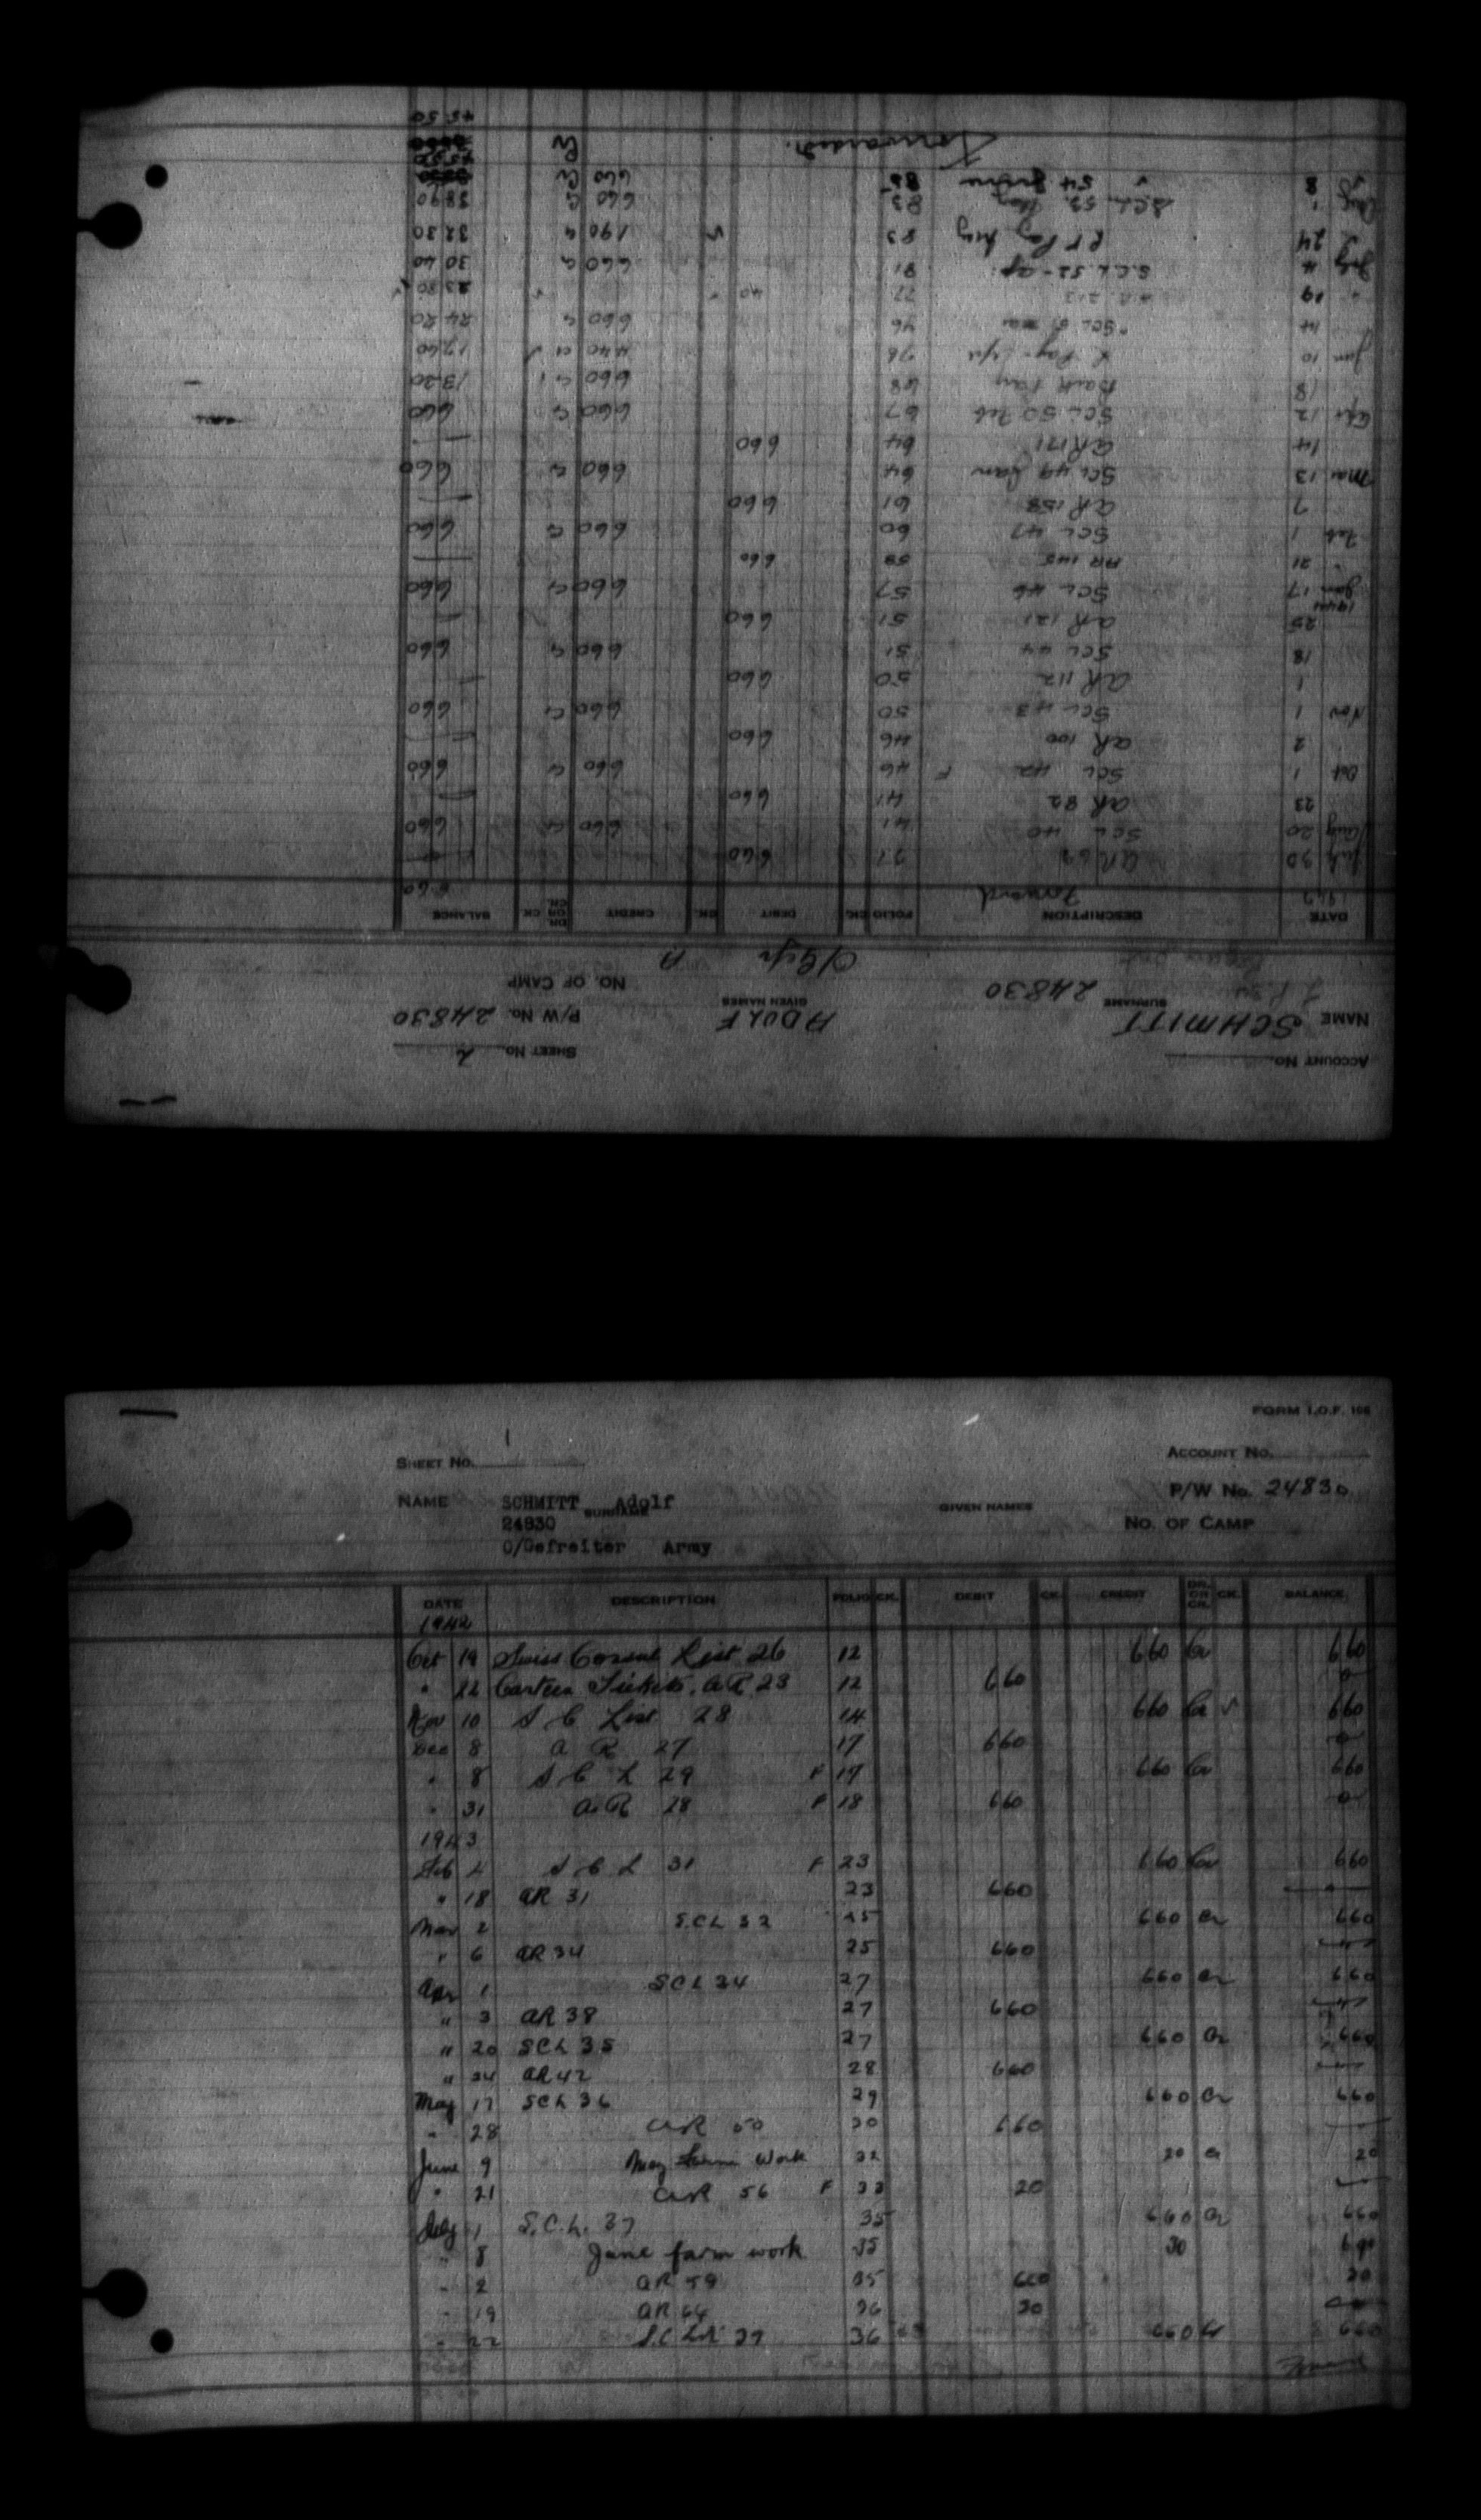 ACCOUNT No.
SHEET No. 2
NAME SCHMITT ADOLF P/W No. 24830
SURNAME GIVEN NAMES
24830 NO. OF CAMP
O/Gefr A
DATE DESCRIPTION FOLIO CK. DEBIT CK. CREDIT DR. OR CR. CK. BALANCE
Forward 660
July 30 AR 69 37 660
Aug 20 SCL 40 41 660 Cr 660
23 AR 82 41 660
Oct 1 SCL 42 F 46 660 Cr 660
2 AR 100 46 660
Nov 1 SCL 43 50 660 Cr 660
1 AR 112 50 660
18 SCL 44 51 660 Cr 660
25 AR 121 51 660
1944
Jan 17 SCL 46 57 660 Cr 660
21 AR 145 58 660
Feb 1 SCL 47 60 660 Cr 660
7 AR 158 61 660
Mar 13 SCL 49 Jan 64 660 Cr 660
14 AR 171 64 660
Apr 12 SCL 50 Feb 67 660 Cr 660
18 Back Pay 68 660 Cr 13 20
Jun 10 76 440 Cr 17 60
14 SCL 51 Mar 76 660 Cr 24 20
" 19 AR 213 77 40 23 80
July 4 S.C.L. 52 - Ap. 81 660 Cr 30 40
" 24 83 190 Cr 32 30
Aug 1 S.C.L. 53. May 83 660 Cr 38 90
" 8 " 54 June 85 660 Cr 45 50
Forward. Cr
45 50
FORM I.O.F. 106
SHEET No. 1 ACCOUNT No.
NAME SCHMITT Adolf P/W No. 24830
SURNAME GIVEN NAMES
24830 NO. OF CAMP
O/Gefreiter Army
DATE DESCRIPTION FOLIO CK. DEBIT CK. CREDIT DR. OR CR. CK. BALANCE
1942
Oct 19 Swiss Consul List 26 12 660 Cr 660
" 22 Canteen Tickets. AR 23 12 660 0
Nov 10 S C List 28 14 660 Cr ✓ 660
Dec 8 A R 27 17 660 0
" 8 S C L 29 F 17 660 Cr 660
" 31 A.R 28 F 18 660 0
1943
Feb 4 S C L 31 F 23 660 Cr 660
" 18 AR 31 23 660
Mar 2 S.C.L 32 25 660 Cr 660
" 6 AR 34 25 660
Apr 1 SCL 34 27 660 Cr 660
" 3 AR 38 27 660
" 20 SCL 35 27 660 Cr 660
" 24 AR 42 28 660
May 17 SCL 36 29 660 Cr 660
" 28 AR 50 30 660
June 9 May Farm Work 32 20 Cr 20
" 21 AR 56 F 33 20
July 1 S.C.L. 37 35 660 Cr 660
" 8 June farm work 35 30 690
" 2 AR 59 35 660 30
" 19 AR 64 36 30
" 22 S.C. List 39 36 660 Cr 660
Forward